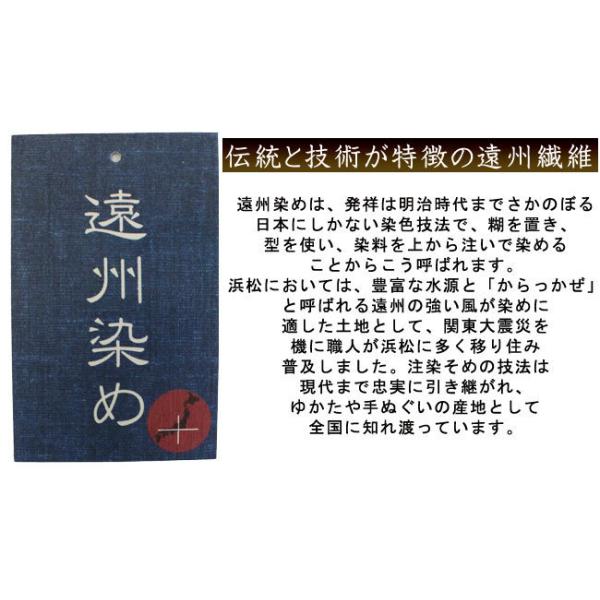 遠州染め
伝統と技術が特徴の遠州繊維
遠州染めは、発祥は明治時代までさかのぼる
日本にしかない染色技法で、糊を置き、
型を使い、染料を上から注いで染める
ことからこう呼ばれます。
浜松においては、豊富な水源と「からっかぜ」
と呼ばれる遠州の強い風が染めに
適した土地として、関東大震災を
機に職人が浜松に多く移り住み
普及しました。注染そめの技法は
現代まで忠実に引き継がれ、
ゆかたや手ぬぐいの産地として
全国に知れ渡っています。